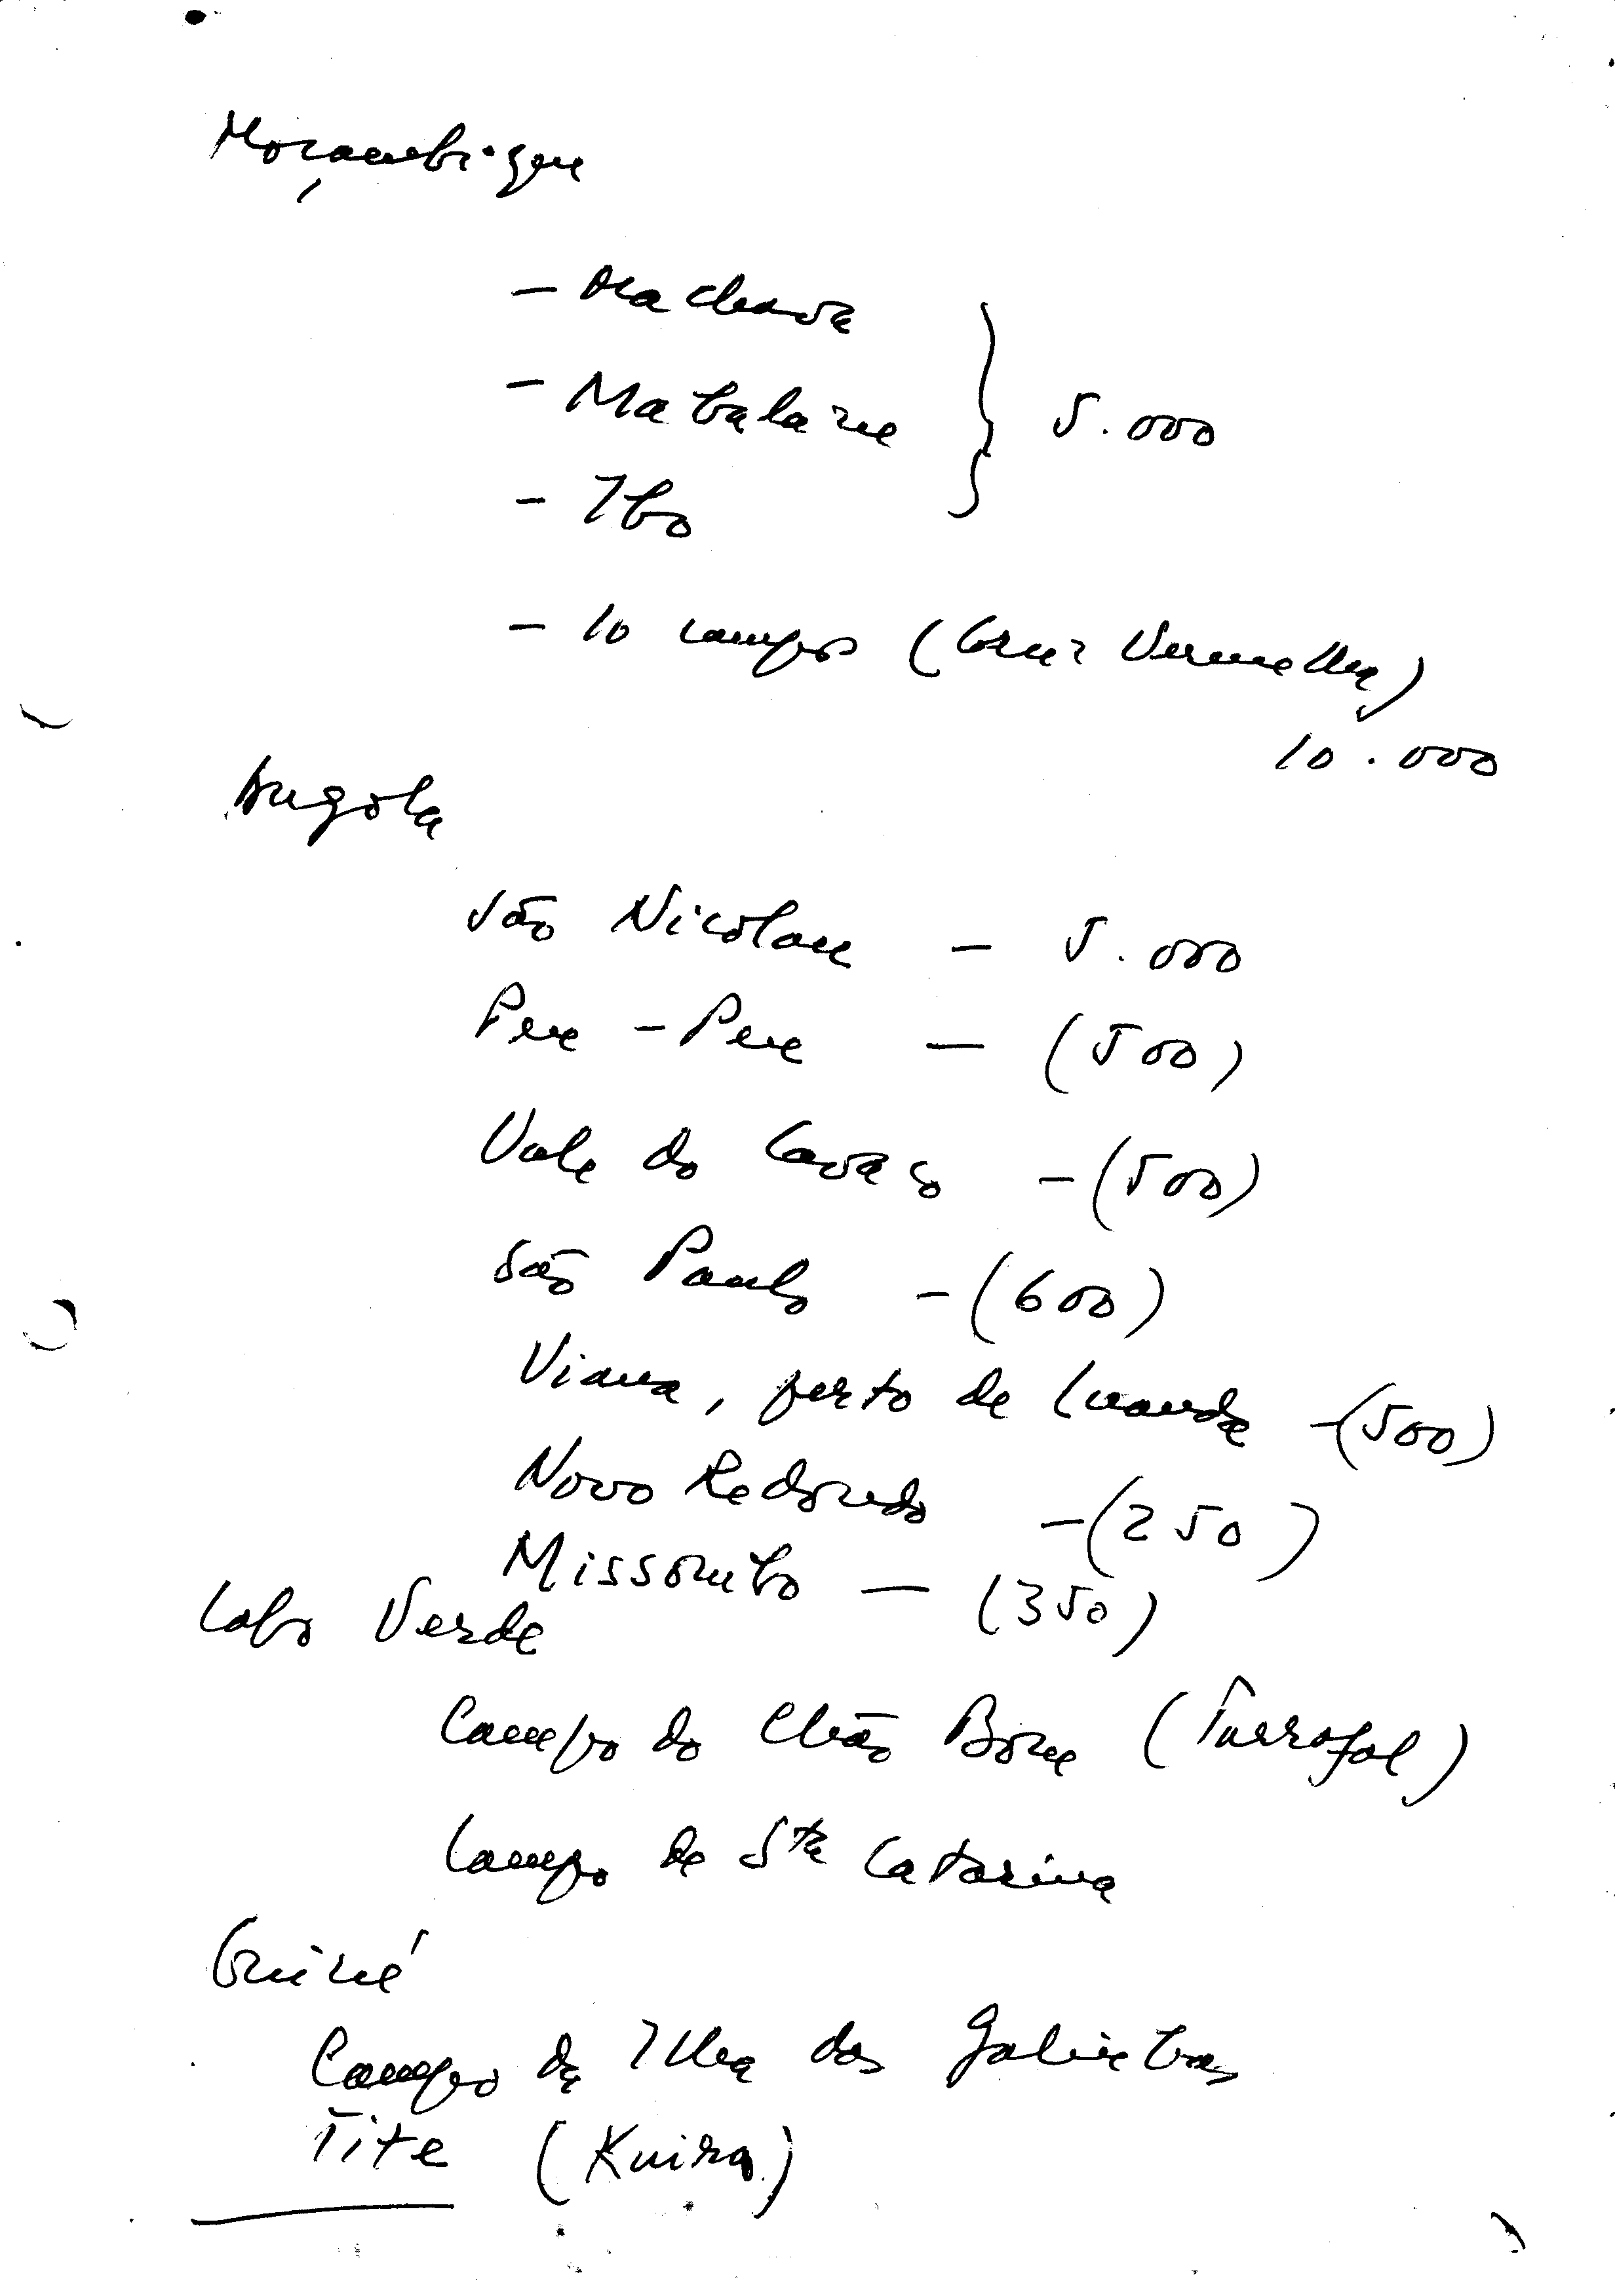 Moçambique
- Machava
- Mabalane
- Ibo
5.000
- 10 campos (Cruz Vermelha)
10.000
Angola
São Nicolau - 5.000
Peu - Peu - (500)
Vale do Cavaco - (500)
São Paulo - (600)
Viana, perto de Luanda - (500)
Novo Redondo - (250)
Missombo - (350)
Cabo Verde
Campo do Chão Bom (Tarrafal)
Campo de Sta Catarina
Guiné
Campo da Ilha das Galinhas
Tite (Kuira)